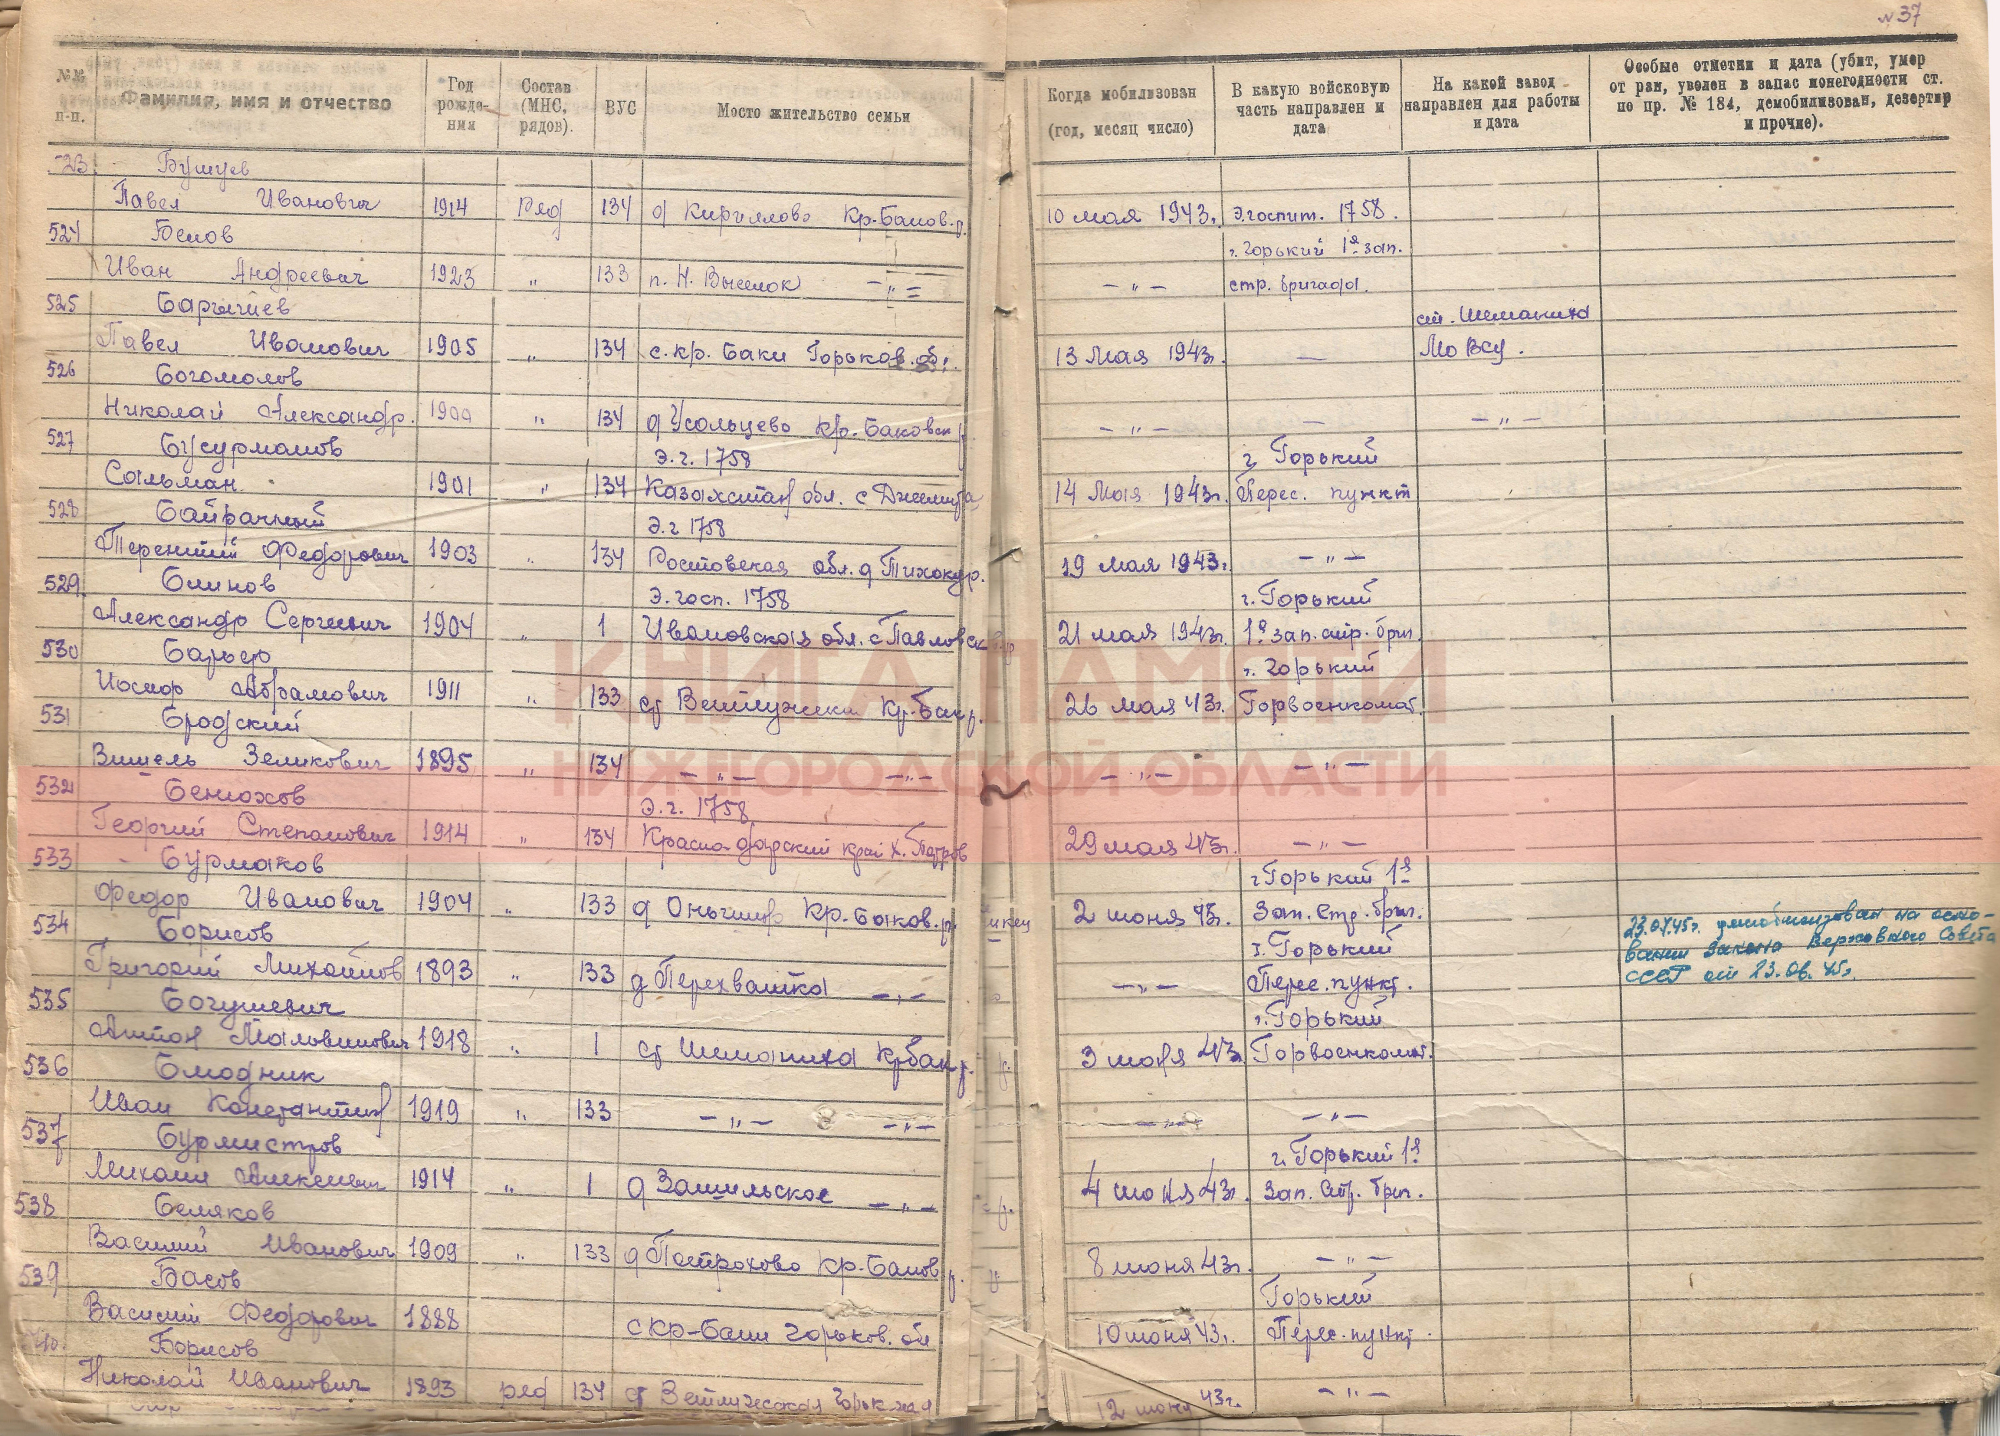 № 37
№№ п-п.
Фамилия, имя и отчество
Год рождения
Состав (МНС, рядов).
ВУС
Место жительство семьи
Когда мобилизован (год, месяц число)
В какую войсковую часть направлен и дата
На какой завод направлен для работы и дата
Особые отметки и дата (убит, умер от ран, уволен в запас понегодности ст. по пр. № 184, демобилизован, дезертир и прочие).
523 Бушуев
Павел Иванович 1914 ряд 134 д Кириллово Кр-Баков. р. 10 мая 1943г. Э.госпит. 1758.
524 Белов г. Горький 1й зап.
Иван Андреевич 1923 „ 133 п. Н. Выселок – „ – – „ – стр. бригада.
525 Барышев ст. Шеманиха
Павел Иванович 1905 „ 134 с. Кр. Баки Горьков. об. 13 мая 1943г. — Мовсу.
526 Богомолов
Николай Александр. 1900 „ 134 д Усольцево Кр. Баковск р. – „ – — – „ –
527 Бусурманов Э.г. 1758 г. Горький
Сальман 1901 „ 134 Казахстан обл. с 14 мая 1943г. Перес. пункт
528 Байрачный Э.г 1758
Терентий Федорович 1903 „ 134 Ростовская обл. д 19 мая 1943г. – „ –
529. Блинов Э. госп. 1758 г. Горький
Александр Сергеевич 1904 „ 1 Ивановская обл. с Павловск 21 мая 1943г. 1й зап. стр. бриг.
530 г. Горький
Иосиф Абрамович 1911 „ 133 ст Ветлужская Кр-Бак р. 26 мая 43г. Горвоенкомат.
531 Бродский
Зеликович 1895 „ 134 – „ – – „ – – „ – – „ –
КНИГА ПАМЯТИ
НИЖЕГОРОДСКОЙ ОБЛАСТИ
532 Бенюхов Э.г. 1758
Георгий Степанович 1914 „ 134 Краснодарский край х. 29 мая 43г. – „ –
533 Бурмаков г Горький 1й
Федор Иванович 1904 „ 133 д Кр-Баков. р. 2 июня 43г. Зап. Стр. бриг.
534 Борисов г. Горький
Григорий Михайлов 1893 „ 133 д Перехватка – „ – – „ – Перес. пункт.
23.07.45г. демобилизован на осно-
вании Закона Верховного Совета
СССР от 23.06.45г.
535 Богушевич г. Горький
Антон 1918 „ 1 ст Шеманиха Кр бак р. 3 июня 43г. Горвоенкомат.
536
Иван Константин 1919 „ 133 – „ – – „ – – „ – – „ –
537 Бурмистров г. Горький 1й
Михаил Алексеевич 1914 „ 1 д Зашильское – „ – 4 июня 43г. Зап. Стр. бриг.
538 Беляков
Василий Иванович 1909 „ 133 д Патрахово Кр-Баков р. 8 июня 43г. – „ –
539 Басов Горький
Василий Федорович 1888 с Кр-Баки Горьков. обл 10 июня 43г. Перес. пункт.
540. Борисов
Николай Иванович 1893 ряд 134 ст Ветлужская 12 июня 43г. – „ –